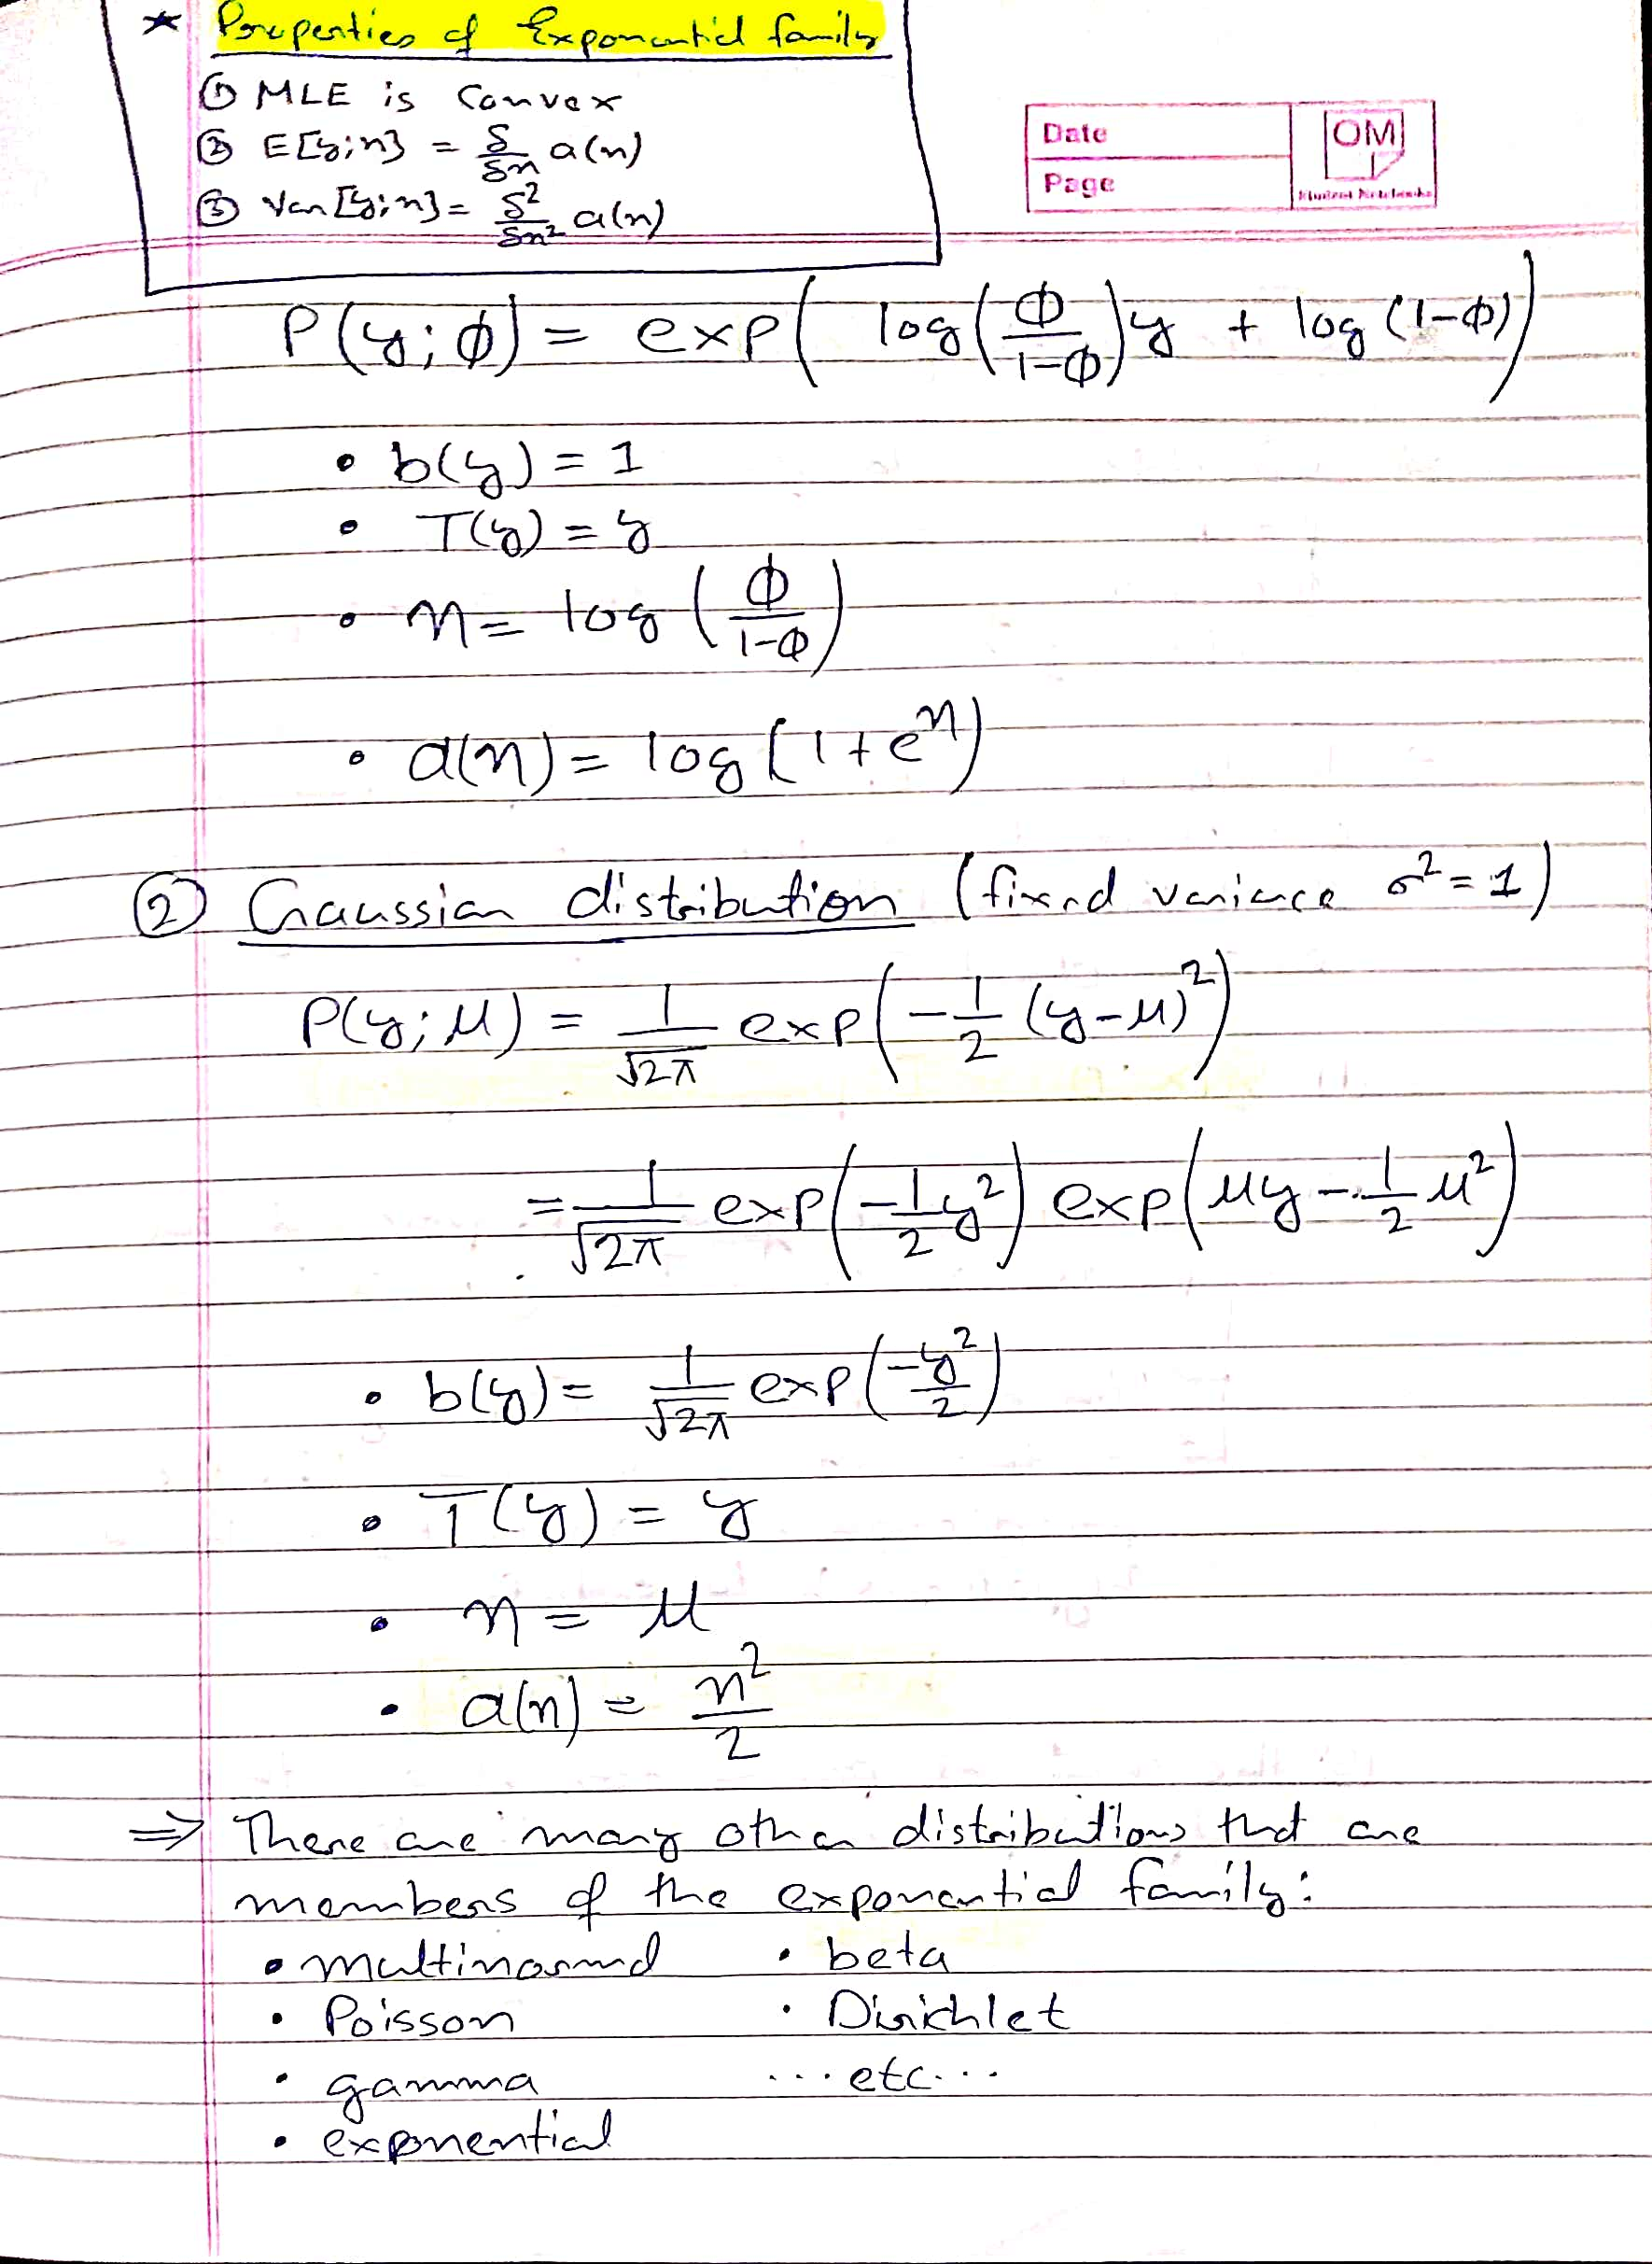 * Properties of Exponential family
① MLE is Convex
② E[y;η] = δ/δη a(η)
③ Var[y;η] = δ²/δη² a(η)
Date
Page
OM
Student Notebooks
P(y;φ) = exp( log(φ/(1-φ))y + log(1-φ))
• b(y) = 1
• T(y) = y
• η = log(φ/(1-φ))
• a(η) = log(1+e^η)
② Gaussian distribution (fixed variance σ²=1)
P(y;μ) = 1/√2π exp(-1/2 (y-μ)²)
= 1/√2π exp(-1/2 y²) exp(μy - 1/2 μ²)
• b(y) = 1/√2π exp(-y²/2)
• T(y) = y
• η = μ
• a(η) = η²/2
⇒ There are many other distributions that are
members of the exponential family:
• multinormal • beta
• Poisson • Dirichlet
• gamma ...etc...
• exponential